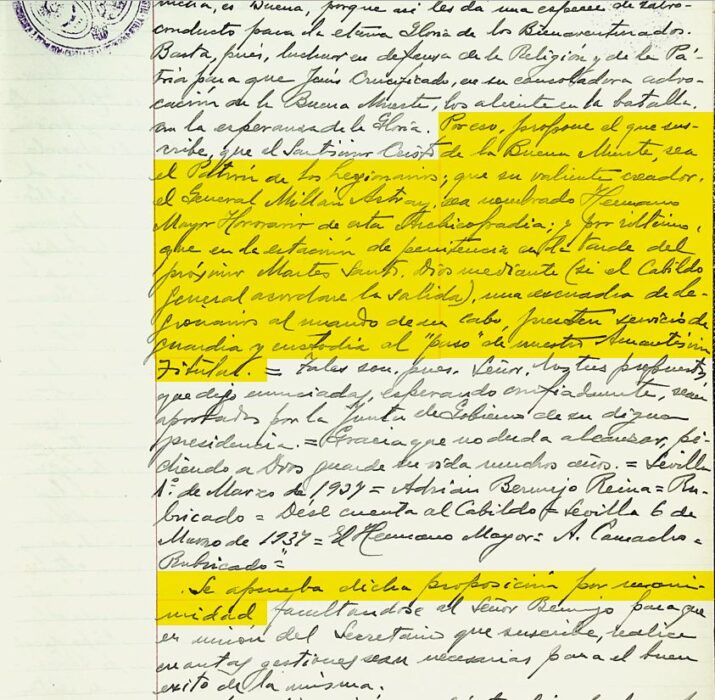 mucha, es buena, porque así les da una especie de salvo-
conducto para la eterna Gloria de los Bienaventurados.
Basta, pues, luchar en defensa de la Religión y de la Pá-
tria para que Jesús Crucificado, en su consoladora advo-
cación de la Buena Muerte, los aliente en la batalla,
con la esperanza de la Gloria. Por eso, propone el que sus-
cribe, que el Santísimo Cristo de la Buena Muerte, sea
el Patrón de los Legionarios; que su valiente creador,
el General Millán Astray, sea nombrado Hermano
Mayor Honorario de esta Archicofradia; y por último,
que en la estación de penitencia en la tarde del
próximo Martes Santo, Dios mediante (si el Cabildo
General acordase la salida), una escuadra de le-
gionarios al mando de un cabo, presten servicio de
guardia y custodia al "paso" de nuestro Amantísimo
Titular. = Tales son, pues, Señor, las tres propuestas
que dejo enunciadas, esperando confiadamente, sean
aprobadas por la Junta de Gobierno de su digna
presidencia. = Gracia que no duda alcanzar, pi-
diendo a Dios guarde su vida muchos años. = Sevilla
1º de Marzo de 1937 = Adrián Bermejo Reina = Ru-
bricado = Dese cuenta al Cabildo = Sevilla 6 de
Marzo de 1937 = El Hermano Mayor = A. Camacho =
Rubricado"=
Se aprueba dicha proposición por unani-
midad facultandose al Señor Bermejo para que
en union del Secretario que suscribe, realice
cuantas gestiones sean necesarias para el buen
exito de la misma.